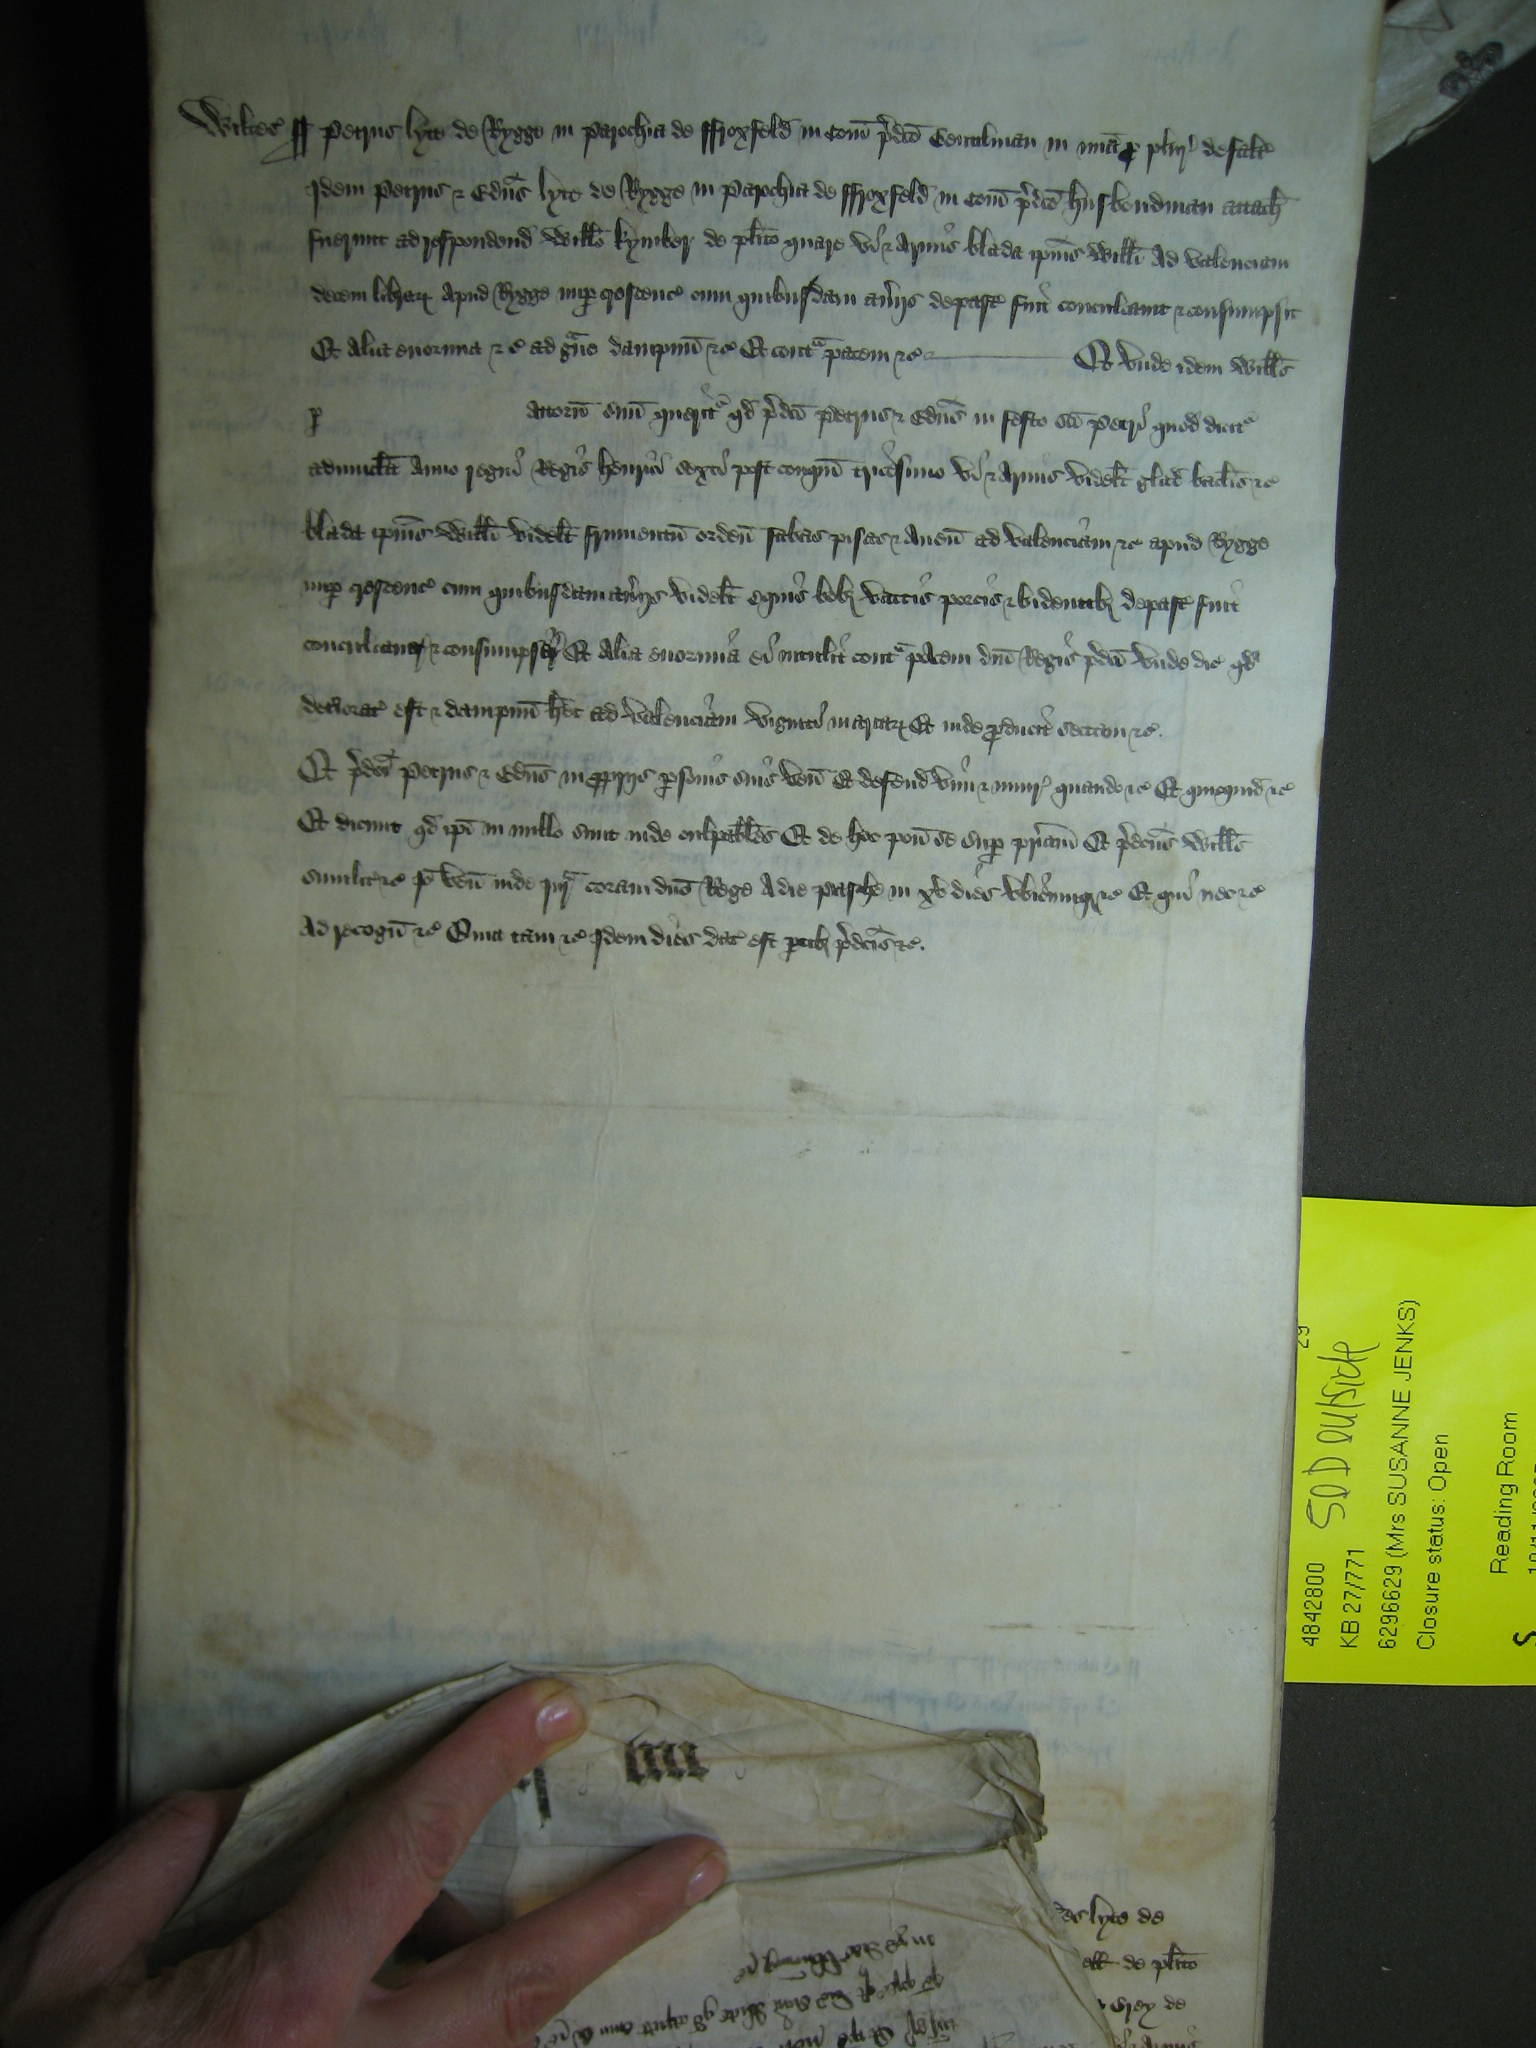 Wiltes ss Petrus lyte de Rygge in parochia de ffroxfeld in Com p'dco Gentilman in mia p plur' defalt'
Idem Petrus & Edus lyte de Rygge in parochia de ffroxfeld in Com p'dco husbondman attach
fuerunt ad respondend Willo kymber de plito quare vi & armis blada ipius Willi ad valenciam
decem librar apud Rygge nup crescenc' cum quibusdam aijs depast' fuit conculcauit & consumpsit
Et alia enormia &c ad g'ue dampnu &c Et cont' pacem &c Et vnde idem Wills
p attorn suu querit' qd p'dci Petrus & Edus in festo sci Petri quod dicit'
aduincla Anno regni Regis henrici sexti post conqm tricesimo vi & armis videlt glad baclis &c
blada ipius Willi videlt frumentu ordeu fabas pisas & auen ad valenciam &c apud Rygge
nup crescenc' cum quibusdam aijs videlt equis bobz vaccis porcis & bidentibz depast' fuit
conculcauer & consumpser Et alia enormia ei intulit cont' pacem dni Regis p'dci vnde dic' qd
deteriorat' est & dampnu het ad valenciam viginti marcar Et inde producit sectam &c.
Et p'dci Petrus & Edus in propriis personis suis ven Et defend vim & iniur' quando &c Et quicquid &c
Et dicunt qd ipi in nullo sunt inde culpabiles Et de hoc pon se sup pr'iam Et p'dcus Wills
similit' &c Io ven inde iur' coram dno Rege A die pasche in xv dies vbicumqz &c Et qui nec &c
Ad recogn &c Quia tam &c Idem dies dat' est ptibz p'dcis &c.
iiii
lyte de
de plito
de
4842800
SOD outside
29
KB 27/771
6296629 (Mrs SUSANNE JENKS)
Closure status: Open
Reading Room
S